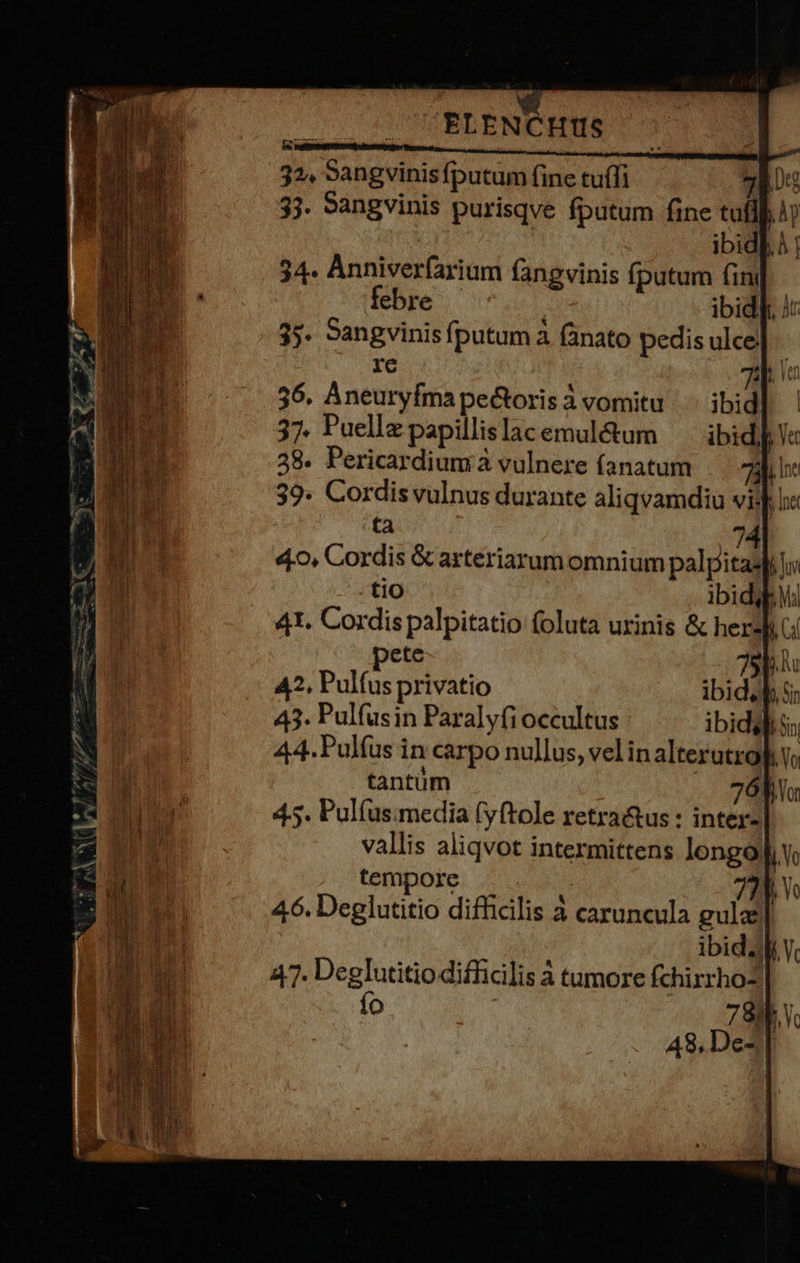 ELENCHUS
32, Sangvinis ſputum ſine tuſſi
33. Sangvinis purisqve ſputum ſine tuſſi,
ibid.
34. Anniverſarium ſangvinis ſputum ſine
febre ibid.
35. Sangvinis ſputum à ſanato pedis ulce-
re
36, Aneuryſma pectoris à vomitu ibid
37. Puellæ papillis lac emulctum ibid.
38. Pericardium à vulnere ſanatum
39. Cordis vulnus durante aliqvamdiu vi-
ta 74
40, Cordis & arteriarum omnium palpita-
tio ibid.
41. Cordis palpitatio ſoluta urinis & her-
pete 75
42, Pulſus privatio ibid.
43. Pulſus in Paralyſi occultus ibid.
44. Pulſus in carpo nullus, vel in alterutro
tantùm 76
45. Pulſus media ſyſtole retractus : inter-
vallis aliqvot intermittens longo
tempore 77
46. Deglutitio difficilis à caruncula gulæ
ibid.
47. Deglutitio difficilis à tumore ſchirrho-
ſo 78
48. De-